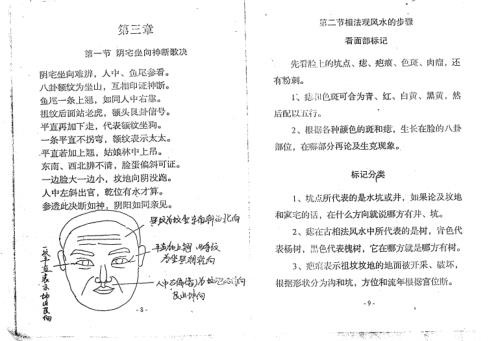 第三章
第一节 阴宅坐向神断歌决
阴宅坐向难辨，人中、鱼尾参看。
八卦额纹为坐山，互相印证神断。
鱼尾一条上翘，如同人中右靠。
祖纹后面站老虎，额头艮卦信号。
平直再加下走，代表额纹坐狗。
一条平直不拐弯，额纹表示太太。
平直若加上翘，姑娘林中上吊。
东南、西北排不清，脸蛋偏斜可证。
一边脸大一边小，坟地向阴没跑。
人中左斜出官，乾位有水才算。
参透此决断如神，阴阳如同亲见。
-8-
第二节相法观风水的步骤
看面部标记
先看脸上的坑点、痣、疤痕、色斑、肉瘤，还
有粉刺。
1、痣和色斑可合为青、红、白黄、黑黄，然
后配以五行。
2、根据各种颜色的斑和痣，生长在脸的八卦
部位，在哪部分再论及生克现象。
标记分类
1、坑点所代表的是水坑或井，如果论及坟地
和家宅的话，在什么方向就说哪方有井、坑。
2、痣在古相法风水中所代表的是树，青色代
表杨树，黑色代表槐树，它在哪方就是哪方有树。
3、疤痕表示祖坟坟地的地面被开采、破坏，
根据形状分为沟和坑，方位和流年根据官位断。
-9-